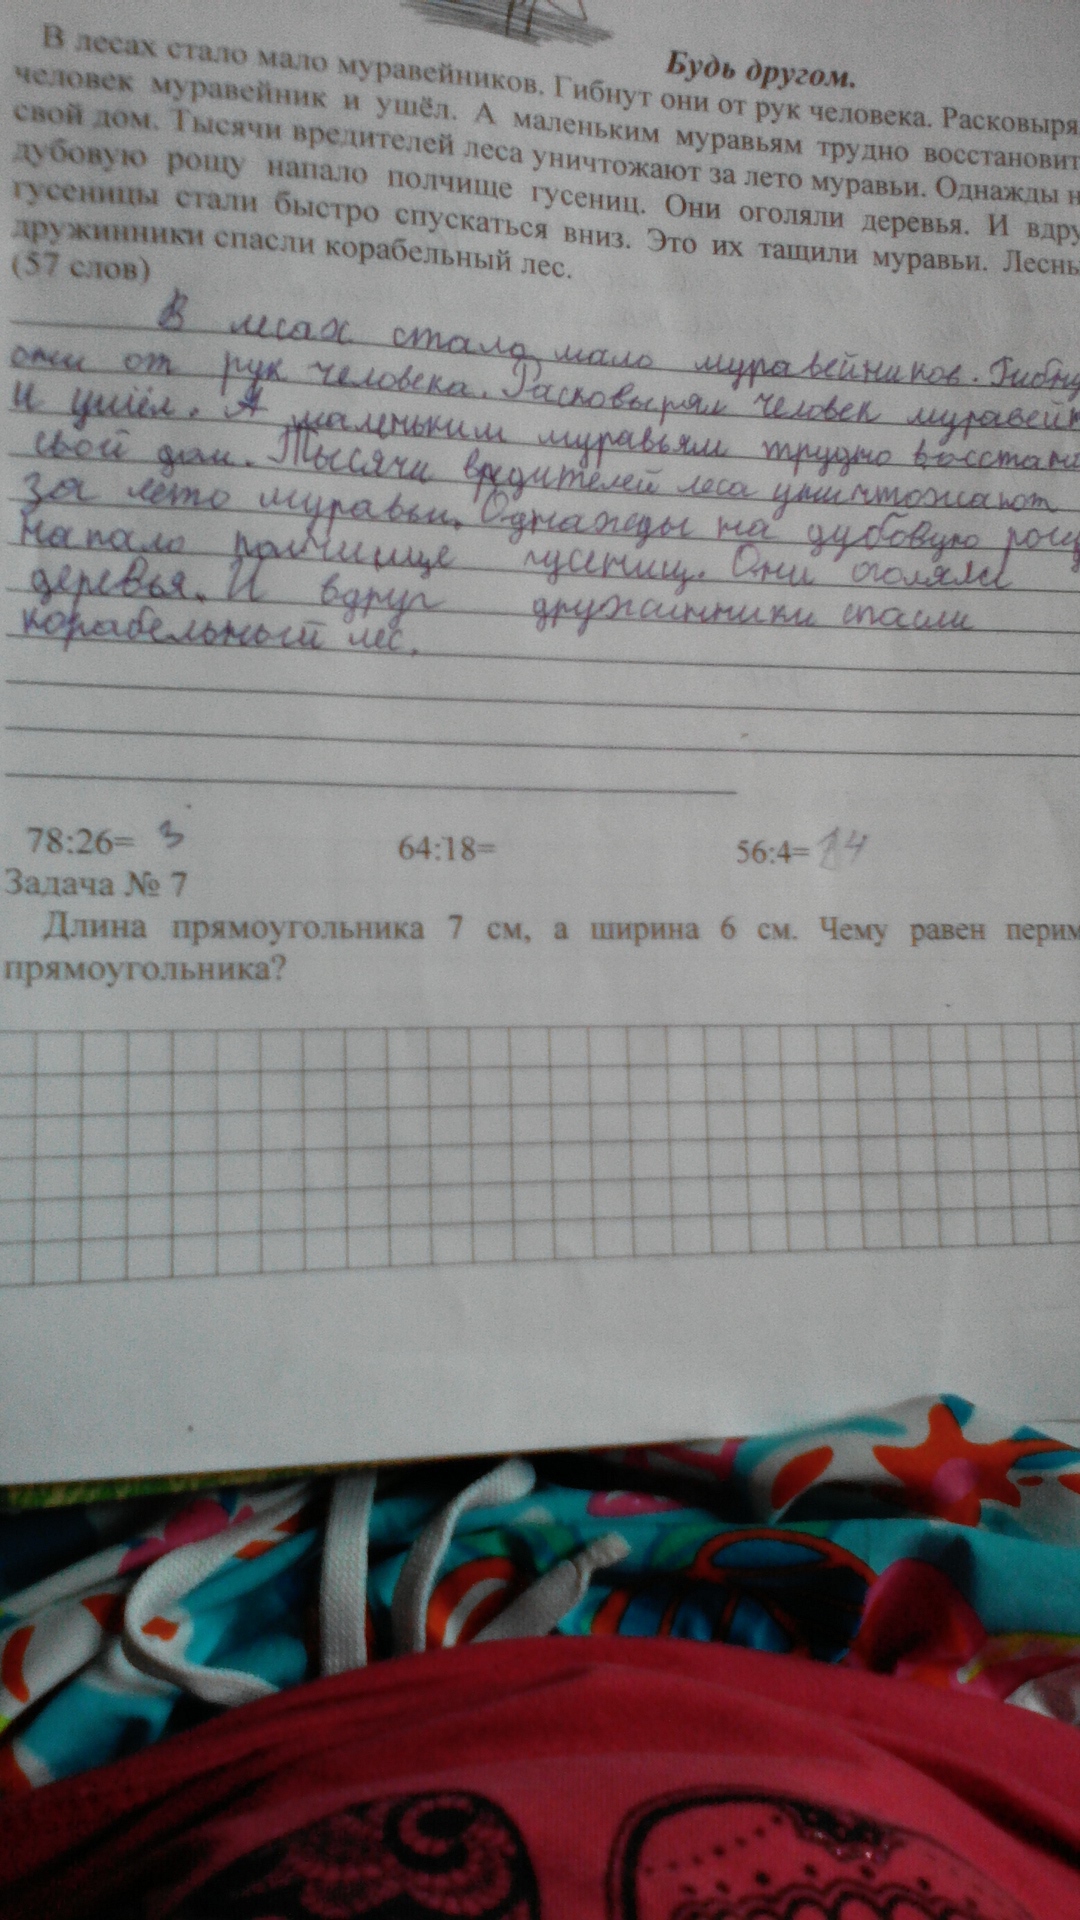 Будь другом.
В лесах стало мало муравейников. Гибнут они от рук человека. Расковыря
человек муравейник и ушёл. А маленьким муравьям трудно восстановит
свой дом. Тысячи вредителей леса уничтожают за лето муравьи. Однажды н
дубовую рощу напало полчище гусениц. Они оголяли деревья. И вдру
гусеницы стали быстро спускаться вниз. Это их тащили муравьи. Лесны
дружинники спасли корабельный лес.
(57 слов)
В лесах стало мало муравейников. Гибну
они от рук человека. Расковырял человек муравейн
и ушёл. А маленьким муравьям трудно восстано
свой дом. Тысячи вредителей леса уничтожают
за лето муравьи. Однажды на дубовую рощ
напало полчище гусениц. Они оголяли
деревья. И вдруг дружинники спасли
корабельный лес.
78:26= 3 64:18= 56:4= 14
Задача № 7
Длина прямоугольника 7 см, а ширина 6 см. Чему равен перим
прямоугольника?